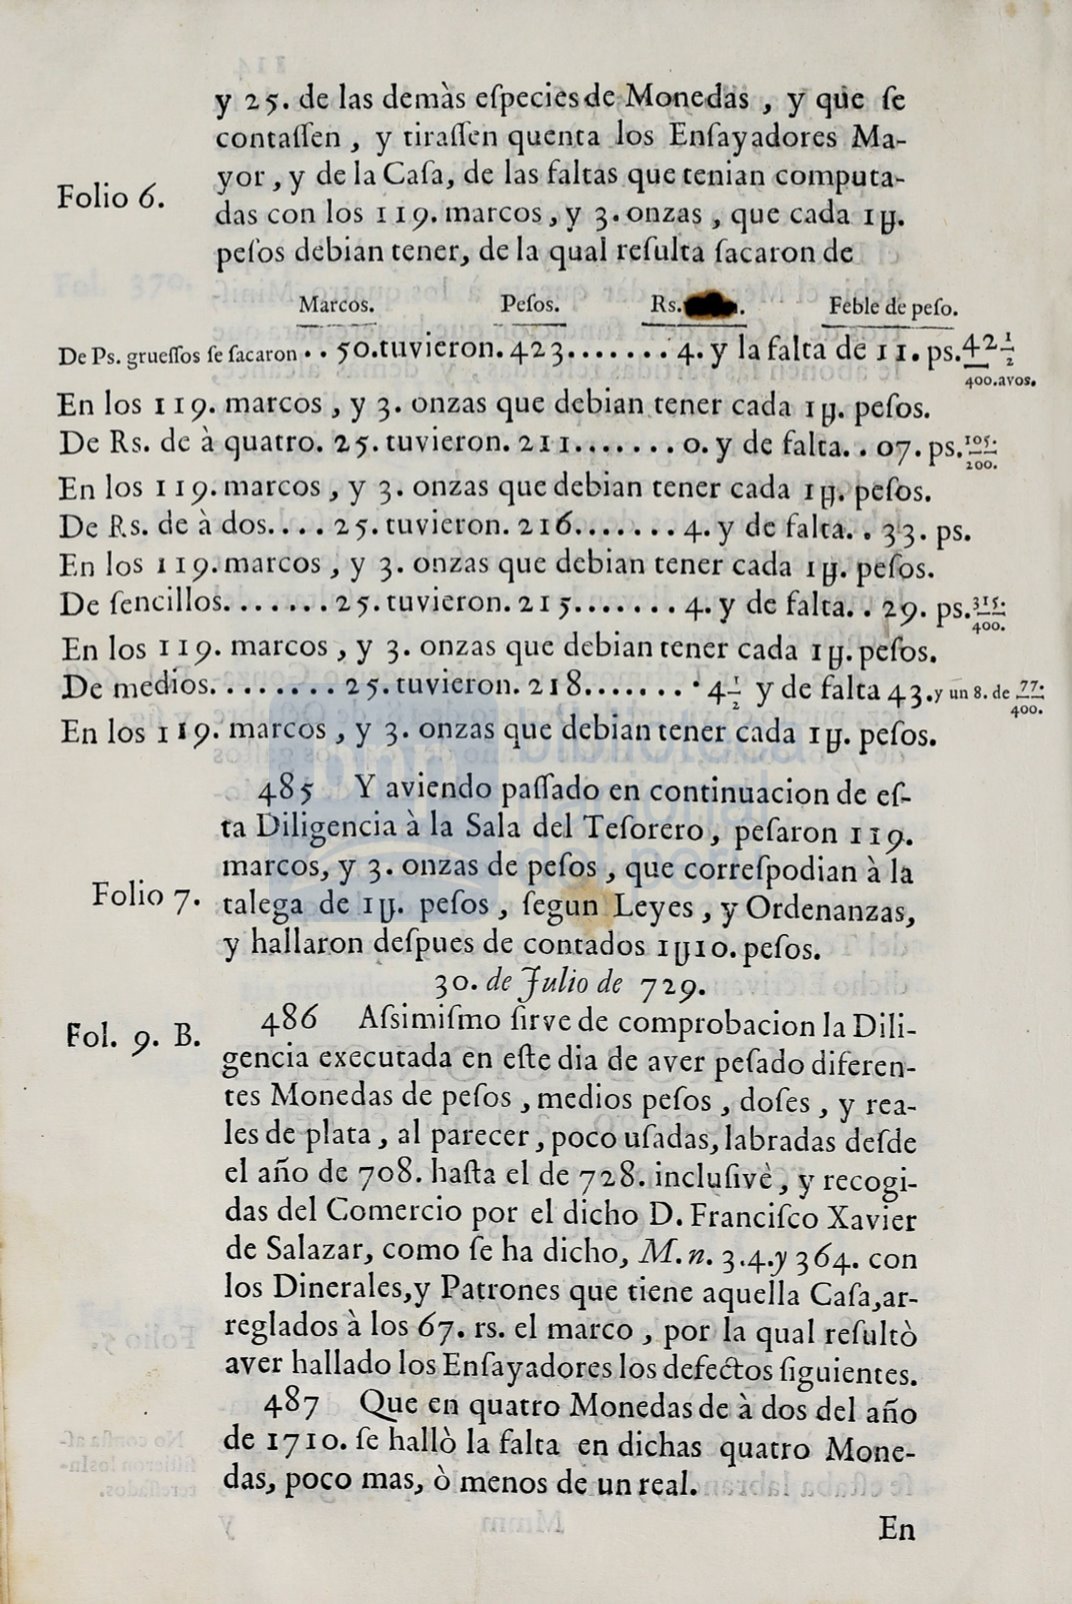 y 25. de las demàs eſpecies de Monedas , y que ſe
contaſſen , y tiraſſen quenta los Enſayadores Ma-
yor , y de la Caſa, de las faltas que tenian computa-
Folio 6.
das con los 119. marcos , y 3. onzas , que cada 1ψ.
peſos debian tener, de la qual reſulta ſacaron de
Marcos. Peſos. Rs. Feble de peſo.
De Ps. grueſſos ſe ſacaron . . 50. tuvieron. 423. . . . . . . 4. y la falta de 11. ps. 42 1/2
400. avos.
En los 119. marcos , y 3. onzas que debian tener cada 1ψ. peſos.
De Rs. de à quatro. 25. tuvieron. 211. . . . . . . 0. y de falta. . 07. ps. 105./200.
En los 119. marcos , y 3. onzas que debian tener cada 1ψ. peſos.
De Rs. de à dos. . . . 25. tuvieron. 216. . . . . . . 4. y de falta. . 33. ps.
En los 119. marcos , y 3. onzas que debian tener cada 1ψ. peſos.
De ſencillos. . . . . . . 25. tuvieron. 215. . . . . . . 4. y de falta. . 29. ps. 315./400.
En los 119. marcos , y 3. onzas que debian tener cada 1ψ. peſos.
De medios. . . . . . . . 25. tuvieron. 218. . . . . . . . 4 1/2 y de falta 43. y un 8. de 77./400.
En los 119. marcos , y 3. onzas que debian tener cada 1ψ. peſos.
485 Y aviendo paſſado en continuacion de eſ-
ta Diligencia à la Sala del Teſorero, peſaron 119.
marcos, y 3. onzas de peſos , que correſpodian à la
Folio 7.
talega de 1ψ. peſos , ſegun Leyes , y Ordenanzas,
y hallaron deſpues de contados 1ψ10. peſos.
30. de Julio de 729.
Fol. 9. B.
486 Aſsimiſmo ſirve de comprobacion la Dili-
gencia executada en eſte dia de aver peſado diferen-
tes Monedas de peſos , medios peſos , doſes , y rea-
les de plata , al parecer , poco uſadas, labradas deſde
el año de 708. haſta el de 728. incluſivè, y recogi-
das del Comercio por el dicho D. Franciſco Xavier
de Salazar, como ſe ha dicho, M. n. 3.4.y 364. con
los Dinerales,y Patrones que tiene aquella Caſa,ar-
reglados à los 67. rs. el marco , por la qual reſultò
aver hallado los Enſayadores los defectos ſiguientes.
487 Que en quatro Monedas de à dos del año
de 1710. ſe hallò la falta en dichas quatro Mone-
das, poco mas, ò menos de un real.
En
biblioteca
nacional
del perú